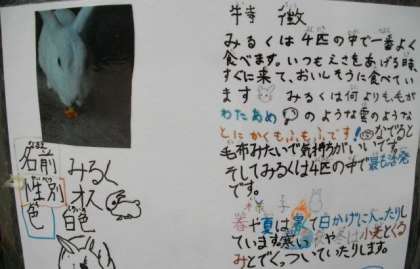 特徴
みるくは4匹の中で一番よく
食べます。いつもえさをあげる時、
すぐに来て、おいしそうに食べてい
ます みるくは何よりも、毛が
わたあめ のような雲のような
とにかくもふもふです! なでると
毛布みたいで気持ちがいいです。
そしてみるくは4匹の中で最も活発
です。
様子
春や夏は暑くて日かげに入ったりし
ています。寒い 冬は小麦とくる
みとでくっついていたりします。
名前 みるく
性別 オス
色 白色